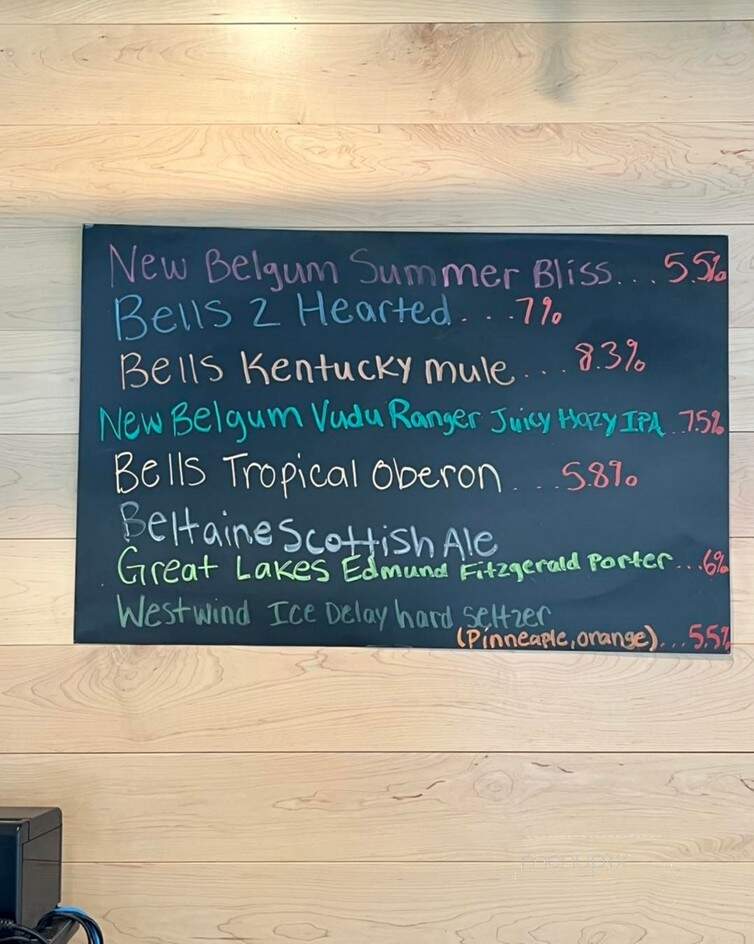 New Belgum Summer Bliss... 5.5%
Bells 2 Hearted. . . . 7%
Bells Kentucky mule. . . . 8.3%
New Belgum Vudu Ranger Juicy Hazy IPA. . 7.5%
Bells Tropical Oberon. . . . 5.8%
Beltaine Scottish Ale
Great Lakes Edmund Fitzgerald Porter...6%
Westwind Ice Delay hard seltzer
(Pinneaple, orange)....5.5%
menupix